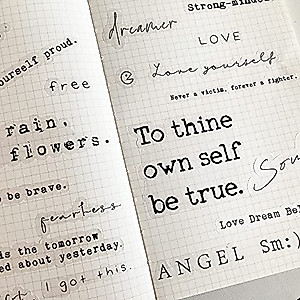 yourself proud.
free
rain,
flowers.
to be brave.
fearless
is the tomorrow
ed about yesterday.
I got this.
dreamer
Strong-minded
LOVE
Love yourself
Never a victim, forever a fighter.
To thine
own self
be true.
Love Dream Bel
ANGEL Sm:)